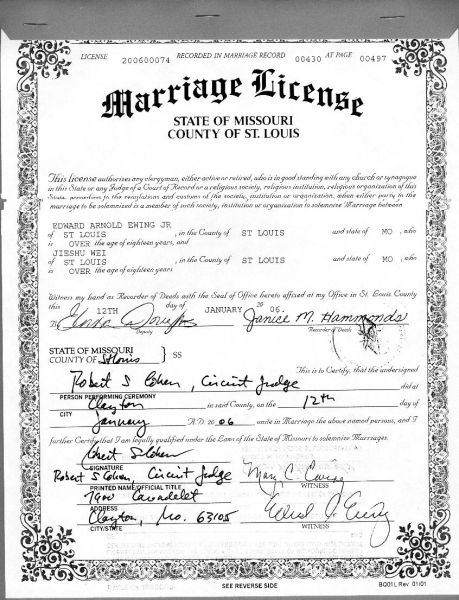 LICENSE 200600074 RECORDED IN MARRIAGE RECORD 00430 AT PAGE 00497
Marriage License
STATE OF MISSOURI
COUNTY OF ST. LOUIS
This license authorizes any clergyman, either active or retired, who is in good standing with any church or synagogue
in this State or any Judge of a Court of Record or a religious society, religious institution, religious organization of this
State, according to the regulations and customs of the society, institution or organization, when either party to the
marriage to be solemnized is a member of such society, institution or organization to solemnize Marriage between
EDWARD ARNOLD EWING JR
of ST LOUIS , in the County of ST LOUIS and state of MO , who
is OVER the age of eighteen years, and
JIESHU WEI
of ST LOUIS , in the County of ST LOUIS and state of MO , who
is OVER the age of eighteen years
Witness my hand as Recorder of Deeds with the Seal of Office hereto affixed at my Office in St. Louis County
this 12TH day of JANUARY 20 06.
By Janice M. Hammonds
Deputy Recorder of Deeds
STATE OF MISSOURI
COUNTY OF St Louis } SS
This is to Certify, that the undersigned
Robert S Cohen, Circuit Judge did at
PERSON PERFORMING CEREMONY
Clayton in said County, on the 12th day of
CITY
January A.D. 2006 unite in Marriage the above named persons, and I
further Certify that I am legally qualified under the Laws of the State of Missouri to solemnize Marriages.
Robert S Cohen
SIGNATURE
Robert S Cohen, Circuit Judge Mary C. Ewing
PRINTED NAME/OFFICIAL TITLE WITNESS
7900 Carondelet
ADDRESS
Clayton, Mo. 63105
CITY/STATE WITNESS
SEE REVERSE SIDE
BO01L Rev. 01/01